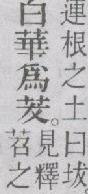 連根之土曰坺
白華爲茇。
見釋
苕之